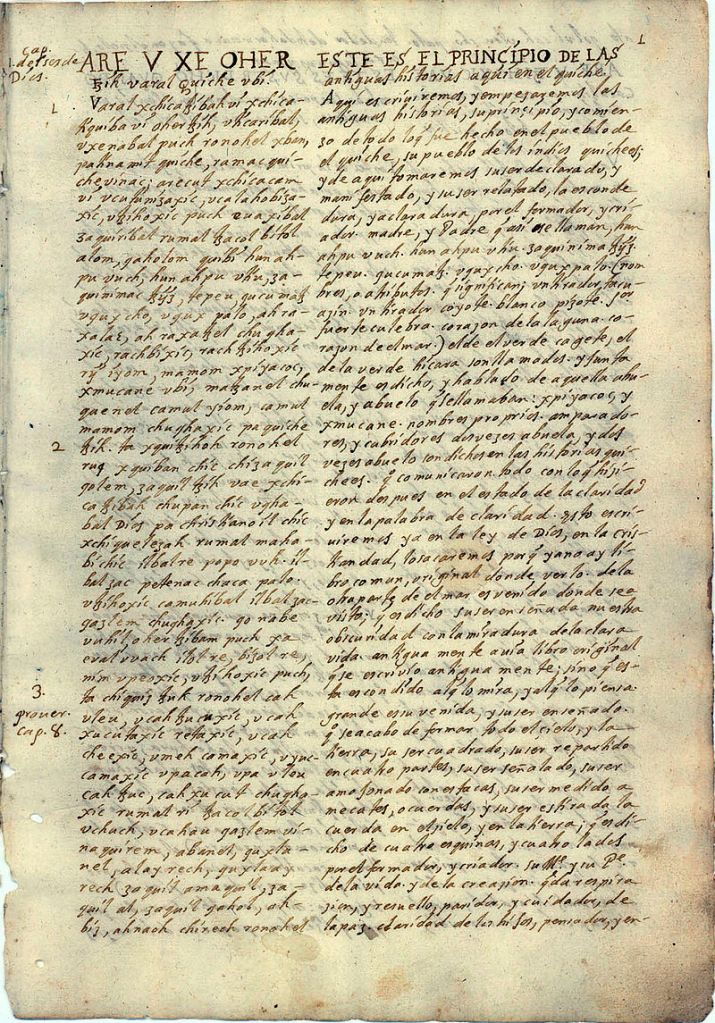 1
Cap.
1. del ser de
Dios.
ARE V XE OHER
tzih varal Quiche ubi.
Varal xchicatzibah vi xchica-
tiquiba vi oher tzih, uticaribal,
uxenabal puch ronohel xban,
pa tinamit quiche, ramac qui-
che vinac; arecut xchicacam
vi ucutunizaxic, ucalahobiza-
xic, utzihoxic puch euaxibal
zaquiribal rumal tzacol bitol
alom, qaholom quibi hun ah-
pu vuch, hun ahpu utiu, za-
quinimac tzijz, tepeu, qucumatz
uqux cho, uqux palo, ah ra-
xalac, ah raxatzel chugha-
xic, rach bixic, rach tzihoxic
rij iyom, mamom xpiyacoc,
xmucane ubi, matzanel chu-
quenel camul iyom, camul
mamom chughaxic pa quiche
tzih. ta xquitzihoh ronohel
ruq xquiban chic chi zaquil
golem, zaquil tzih vae xchi-
catzibah chupan chic ughabal
Dios pa christianoil chic
xchiquelezah rumal maha-
bi chic ilbal re popo vuh. il-
bal zac petenac chaca palo.
utzihoxic camuhibal ilbal zac
gazlem chughoxic. go nabe
vuhil, oher tzibam puch xa
eval uvach ilol re, bizol re,
nim upeoxic, utzihoxic puch,
ta chiquis tzuk ronohel cah
uleu, ucah tzucuxic, ucah
xucutaxic retaxic, ucah
cheexic, umeh camaxic, uyuc
camaxic upa cah, upa uleu
cah tzuc, cah xucut chugha-
xic rumal ri tzacol bitol
uchuch, ucahau gazlem vi-
naquirem, abanel, guxla-
nel, alay rech, guxlaay
rech zaquil amaquil, za-
quil al, zaquil qahol, ah-
biz, ahnaoh chirech ronohel
1
2
3.
prouer.
cap. 8.
ESTE ES EL PRINCIPIO DE LAS
antiguas historias aqui en el quiche.
Aqui escriviremos, y empezaremos las
antiguas historias, su principio, y comien-
zo de todo lo q fue hecho en el pueblo de
el quiche, su pueblo de los indios quichees;
y de aqui tomaremos su ser declarado, y
manifestado, y su ser relatado, la esconde
dura, y aclaradura, por el formador, y cri-
ador. madre, y Padre q asi se llaman, hun
ahpu vuch. hun ahpu utiu. zaquinima tzijz.
tepeu. qucumatz. uqux cho. uqux palo. (nom
bres, o atributos. q significan; vn tirador tacu-
azin. vn tirador coyote. blanco pizote. Sor
fuerte culebra. corazon de la laguna. co-
razon de el mar.) el de el verde cagete, el
de la verde hicara son llamados. y junta
mente es dicho, y hablado de aquella abu-
ela, y abuelo q se llamaban: xpiyacoc, y
xmucane. nombres proprios. amparado-
res, y cubridores dos vezes abuela, y dos
vezes abuelo son dichos en las historias qui-
chees. q comunicaron todo con lo q hizi-
eron despues en el estado de la claridad
y en la palabra de claridad. Esto escri-
uiremos ya en la ley de Dios, en la cris-
tiandad, lo sacaremos porq ya no ay li-
bro comun, original donde verlo. de la
otra parte de el mar es venido donde se a
visto; y es dicho su ser enseñada nuestra
obscuridad con la miradura de la clara
vida. antigua mente auia libro original
que se escrivio antigua mente; sino q es-
ta escondido al q lo mira, y al q lo piensa.
grande es su venida, y su ser enseñado.
q se acabo de formar todo el cielo, y la
tierra, su ser cuadrado, su ser repartido
en cuatro partes, su ser señalado, su ser
amojonado con estacas, su ser medido a
mecates, o cuerdas, y su ser estirada la
cuerda en el zielo, y en la tierra; q es di-
cho de cuatro esquinas, y cuatro lados
por el formador, y criador. su Me. y su Pe.
de la vida. y de la creazion. q da respira-
zion, y resuello, paridor, y cuidador, de
la paz. claridad de los hijos, pensador, y en-